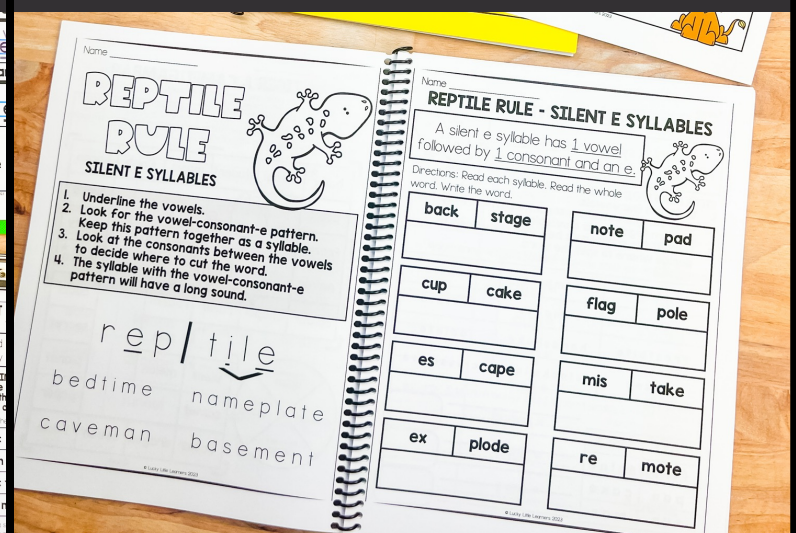 Name
REPTILE
RULE
SILENT E SYLLABLES
1. Underline the vowels.
2. Look for the vowel-consonant-e pattern.
Keep this pattern together as a syllable.
3. Look at the consonants between the vowels
to decide where to cut the word.
4. The syllable with the vowel-consonant-e
pattern will have a long sound.
rep|tile
bedtime nameplate
caveman basement
© Lucky Little Learners 2023
Name
REPTILE RULE - SILENT E SYLLABLES
A silent e syllable has 1 vowel
followed by 1 consonant and an e.
Directions: Read each syllable. Read the whole
word. Write the word.
back stage note pad
cup cake flag pole
es cape mis take
ex plode re mote
© Lucky Little Learners 2023